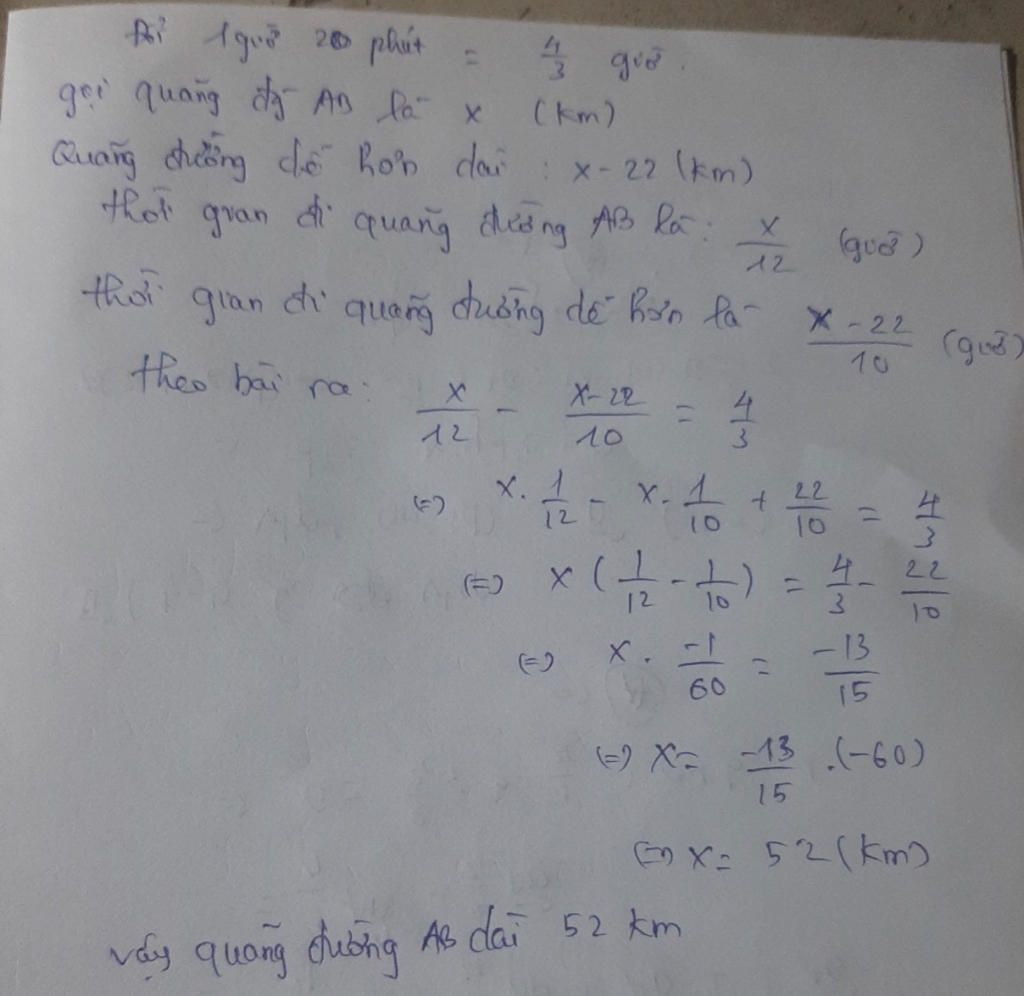 Đổi 1 giờ 20 phút = 4/3 giờ.
gọi quãng đg AB là x (km)
Quãng đường dễ hơn dài : x - 22 (km)
thời gian đi quãng đường AB là: x/12 (giờ)
thời gian đi quãng đường dễ hơn là x - 22/10 (giờ)
theo bài ra: x/12 - x - 22/10 = 4/3
(=) x. 1/12 - x. 1/10 + 22/10 = 4/3
(=) x (1/12 - 1/10) = 4/3 - 22/10
(=) x. -1/60 = -13/15
(=) x = -13/15 .(-60)
(=) x = 52 (km)
vậy quãng đường AB dài 52 km